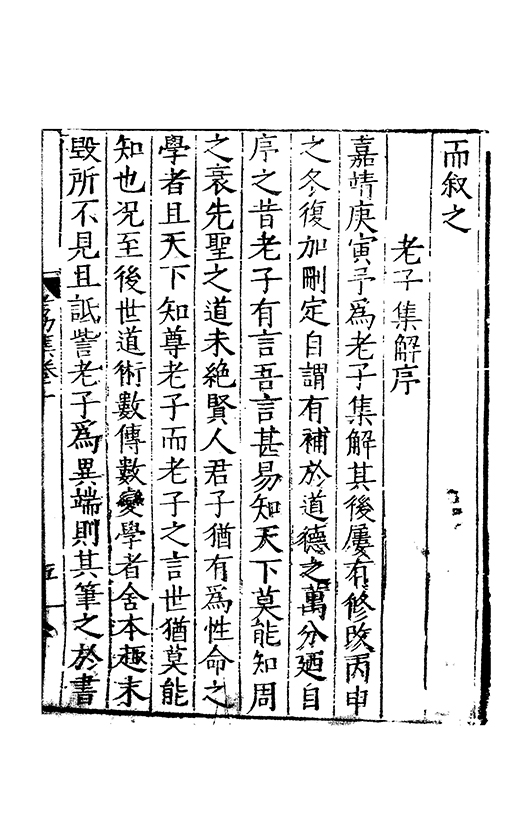 而叙之
老子集解序
嘉靖庚寅予爲老子集解其後屢有修改丙申
之冬復加刪定自謂有補於道德之萬分廼自
序之昔老子有言吾言甚易知天下莫能知周
之衰先聖之道未絶賢人君子猶有爲性命之
學者且天下知尊老子而老子之言世猶莫能
知也况至後世道術數傳數變學者舍本趣末
毀所不見且詆訾老子爲異端則其筆之於書